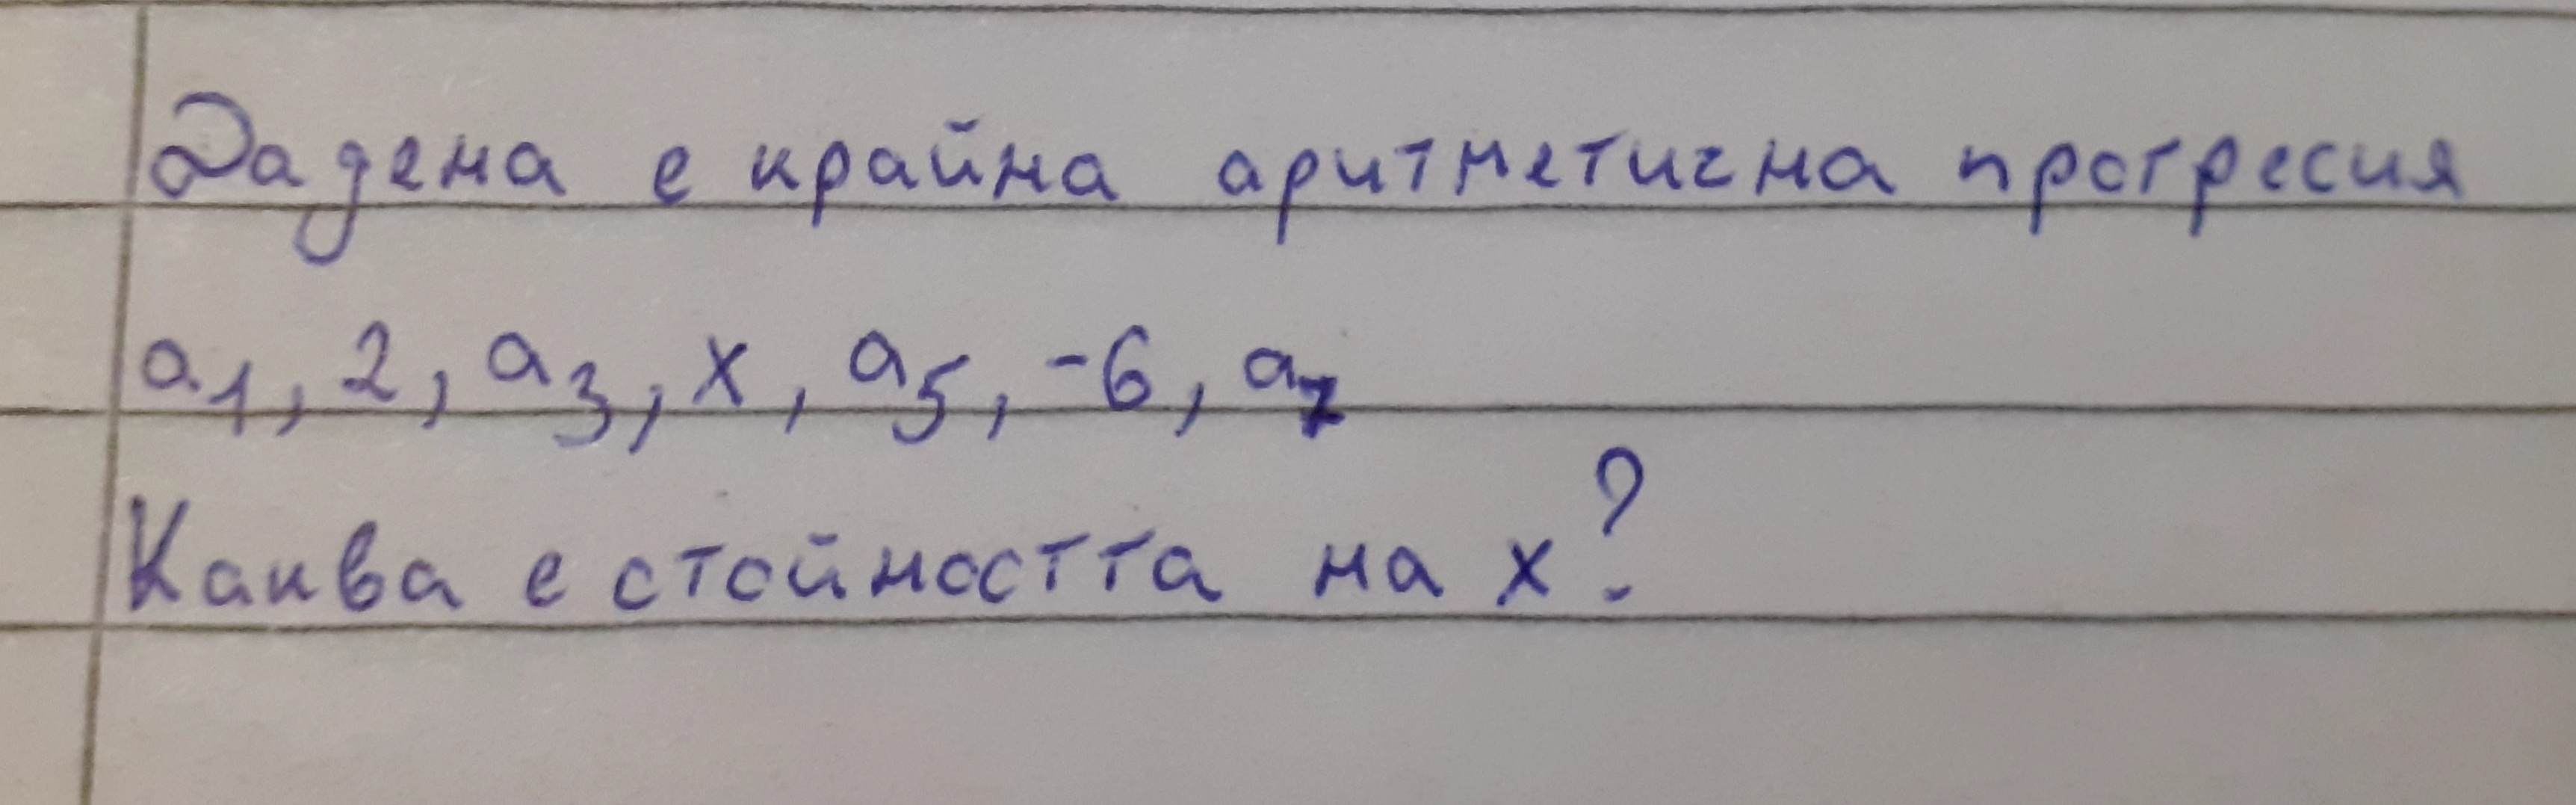 Дадена е крайна аритметична прогресия
a₁, 2, a₃, x, a₅, -6, a₇
Каква е стойността на x?